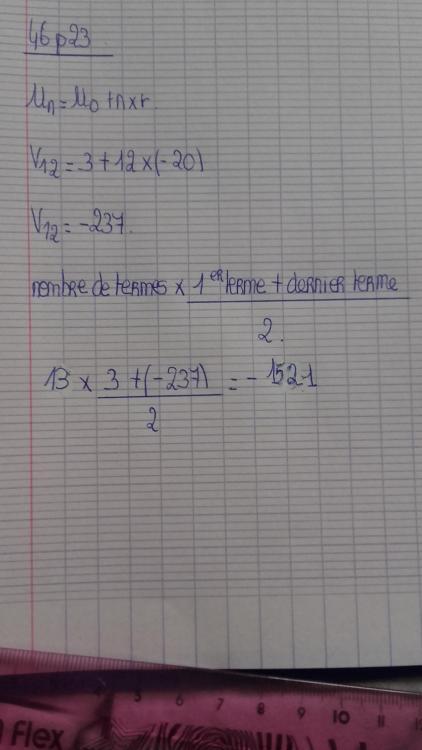 46 p23
Un = U0 + n x r.
V12 = 3 + 12 x (-20)
V12 = -237.
nombre de termes x 1er terme + dernier terme
2.
13 x 3 + (-237) = - 1521
2
5 6 7 8 9 10 11
Flex